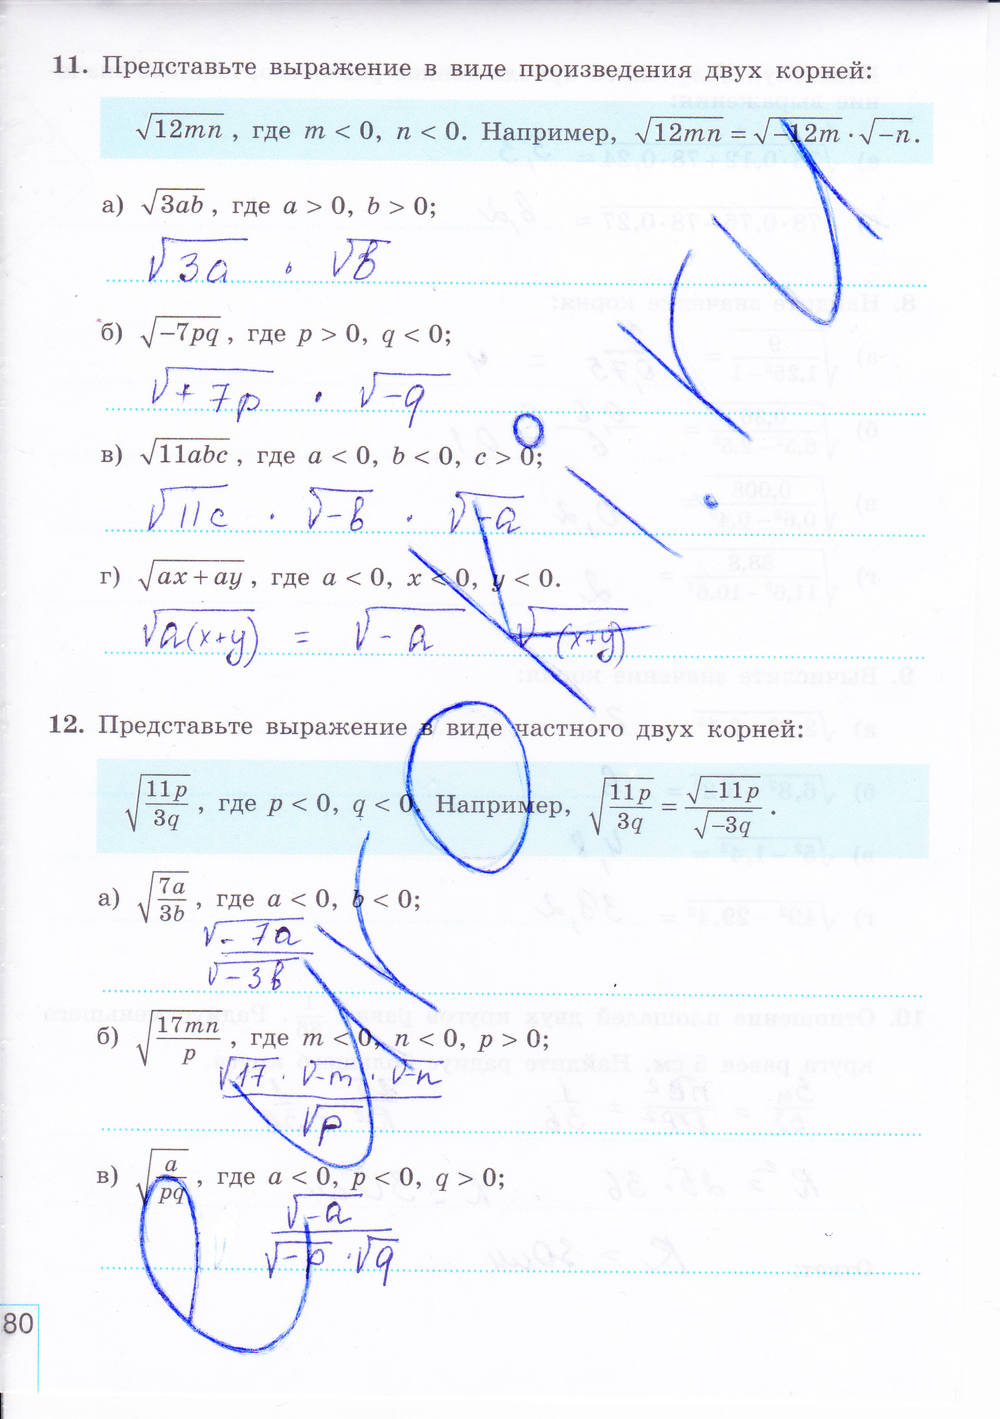 11. Представьте выражение в виде произведения двух корней:
√12mn, где m < 0, n < 0. Например, √12mn = √−12m · √−n.
а) √3ab, где a > 0, b > 0;
√3a · √b
б) √−7pq, где p > 0, q < 0;
√+7p · √−q
в) √11abc, где a < 0, b < 0, c > 0;
√11c · √−b · √−a
г) √ax + ay, где a < 0, x < 0, y < 0.
√a(x+y) = √−a √−(x+y)
12. Представьте выражение в виде частного двух корней:
√11p/3q, где p < 0, q < 0. Например, √11p/3q = √−11p/√−3q.
а) √7a/3b, где a < 0, b < 0;
√−7a/√−3b
б) √17mn/p, где m < 0, n < 0, p > 0;
√17 · √−m · √−n/√p
в) √a/pq, где a < 0, p < 0, q > 0;
√−a/√−p · √q
80